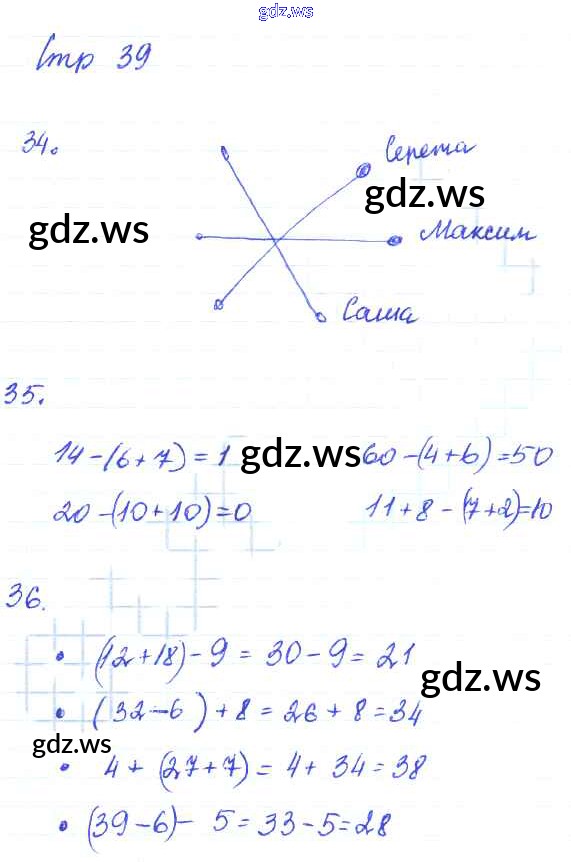 gdz.ws
Стр 39
34.
Сережа
gdz.ws
gdz.ws
Максим
Саша
35.
14-(6+7)=1 gdz.ws 60-(4+6)=50
20-(10+10)=0 11+8-(7+2)=10
36.
• (12+18)-9=30-9=21
gdz.ws
• (32-6)+8=26+8=34
gdz.ws
• 4+(27+7)=4+34=38
• (39-6)-5=33-5=28